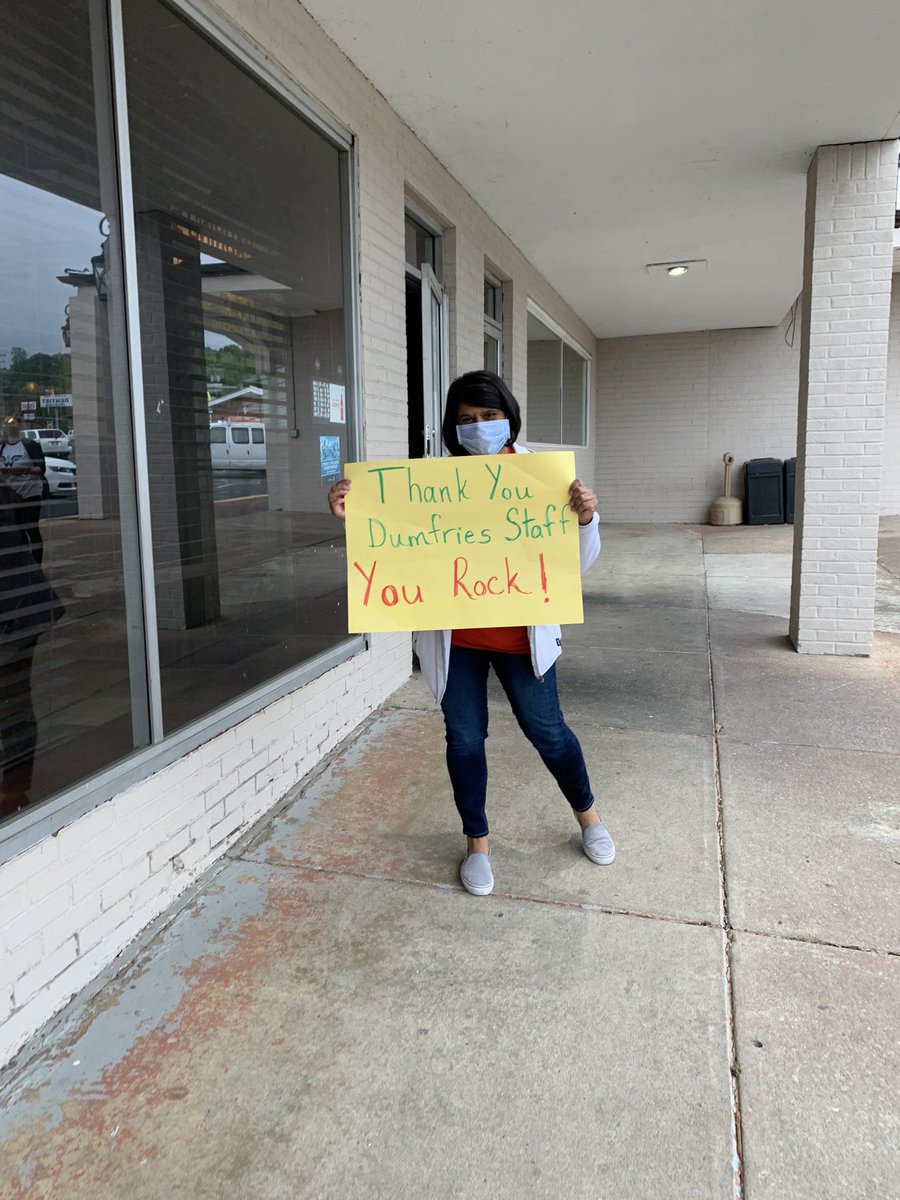 Thank You
Dumfries Staff
You Rock!
DENTIST